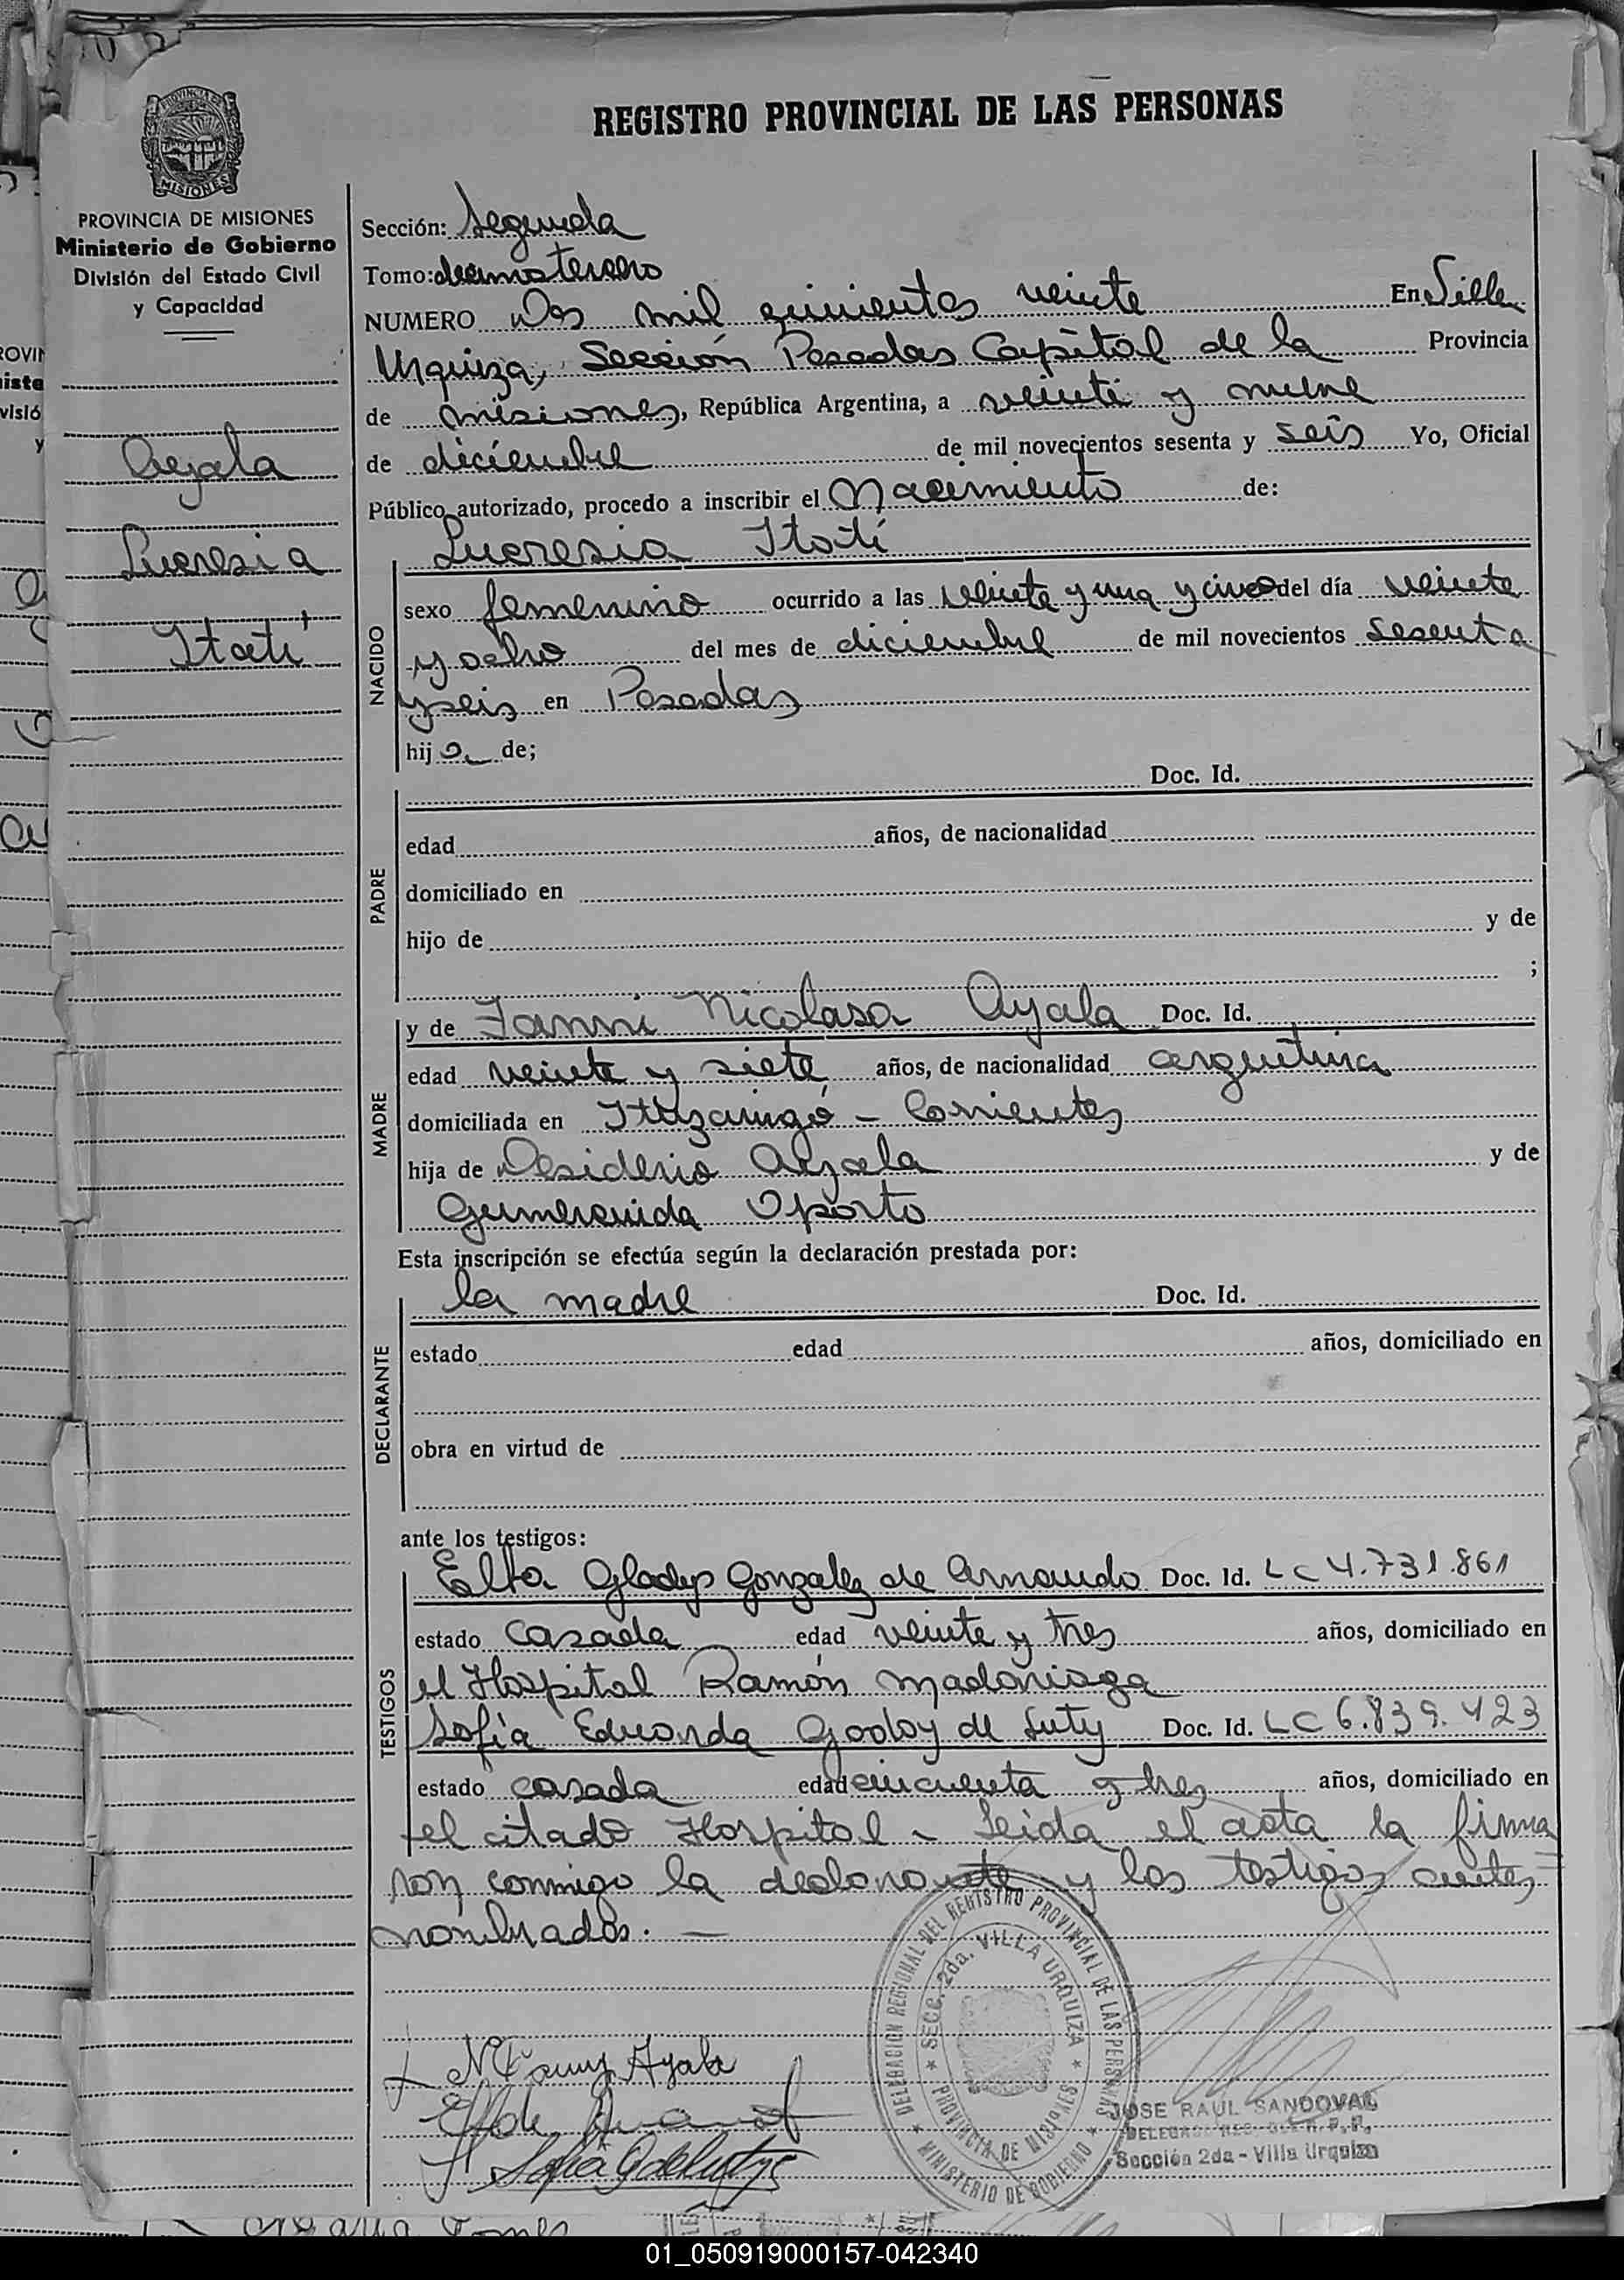 REGISTRO PROVINCIAL DE LAS PERSONAS
PROVINCIA DE MISIONES
Ministerio de Gobierno
División del Estado Civil
y Capacidad
Ayala
Lucresia
Itatí
Sección: Segunda
Tomo: decimo tercero
NUMERO Dos mil quinientos veinte En Villa
Urquiza, Sección Posadas Capital de la Provincia
de misiones, República Argentina, a veinte y nueve
de diciembre de mil novecientos sesenta y seis Yo, Oficial
Público autorizado, procedo a inscribir el Nacimiento de:
NACIDO
Lucresia Itatí
sexo femenino ocurrido a las veinte y una y cinco del día veinte
y ocho del mes de diciembre de mil novecientos sesenta
y seis en Posadas
hij a de;
PADRE
Doc. Id.
edad años, de nacionalidad
domiciliado en
hijo de y de
;
MADRE
y de Fanni Nicolasa Ayala Doc. Id.
edad veinte y siete años, de nacionalidad argentina
domiciliada en Ituzaingó - Corrientes
hija de Desiderio Ayala y de
Gumersinda Oporto
Esta inscripción se efectúa según la declaración prestada por:
DECLARANTE
la madre Doc. Id.
estado edad años, domiciliado en
obra en virtud de
ante los testigos:
TESTIGOS
Elba Gladys Gonzalez de Doc. Id. LC 4.731.861
estado casada edad veinte y tres años, domiciliado en
el Hospital Ramón Madariaga
Sofía Eduarda Godoy de Luty Doc. Id. LC 6.839.423
estado casada edad cincuenta y tres años, domiciliado en
el citado Hospital - Leida el acta la firma
ron conmigo la declarante y los testigos antes
nombrados. —
DELEGACION REGIONAL DEL REGISTRO PROVINCIAL DE LAS PERSONAS
SECC. 2da. VILLA URQUIZA
PROVINCIA DE MISIONES
MINISTERIO DE GOBIERNO
N Fanny Ayala
JOSE RAUL SANDOVAL
Sección 2da - Villa Urquiza
01_050919000157-042340